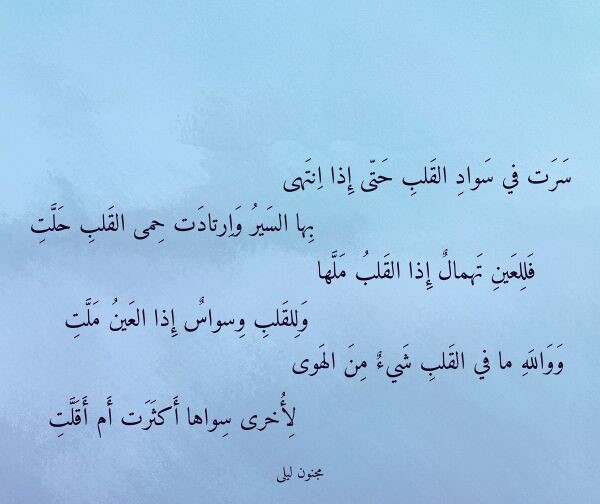 سَرَت في سَوادِ القَلبِ حَتّى إِذا اِنتَهى
بِها السَيرُ وَاِرتادَت حِمى القَلبِ حَلَّتِ
فَلِلعَينِ تَهمالٌ إِذا القَلبُ مَلَّها
وَلِلقَلبِ وِسواسٌ إِذا العَينُ مَلَّتِ
وَوَاللَهِ ما في القَلبِ شَيءٌ مِنَ الهَوى
لِأُخرى سِواها أَكثَرَت أَم أَقَلَّتِ
مجنون ليلى